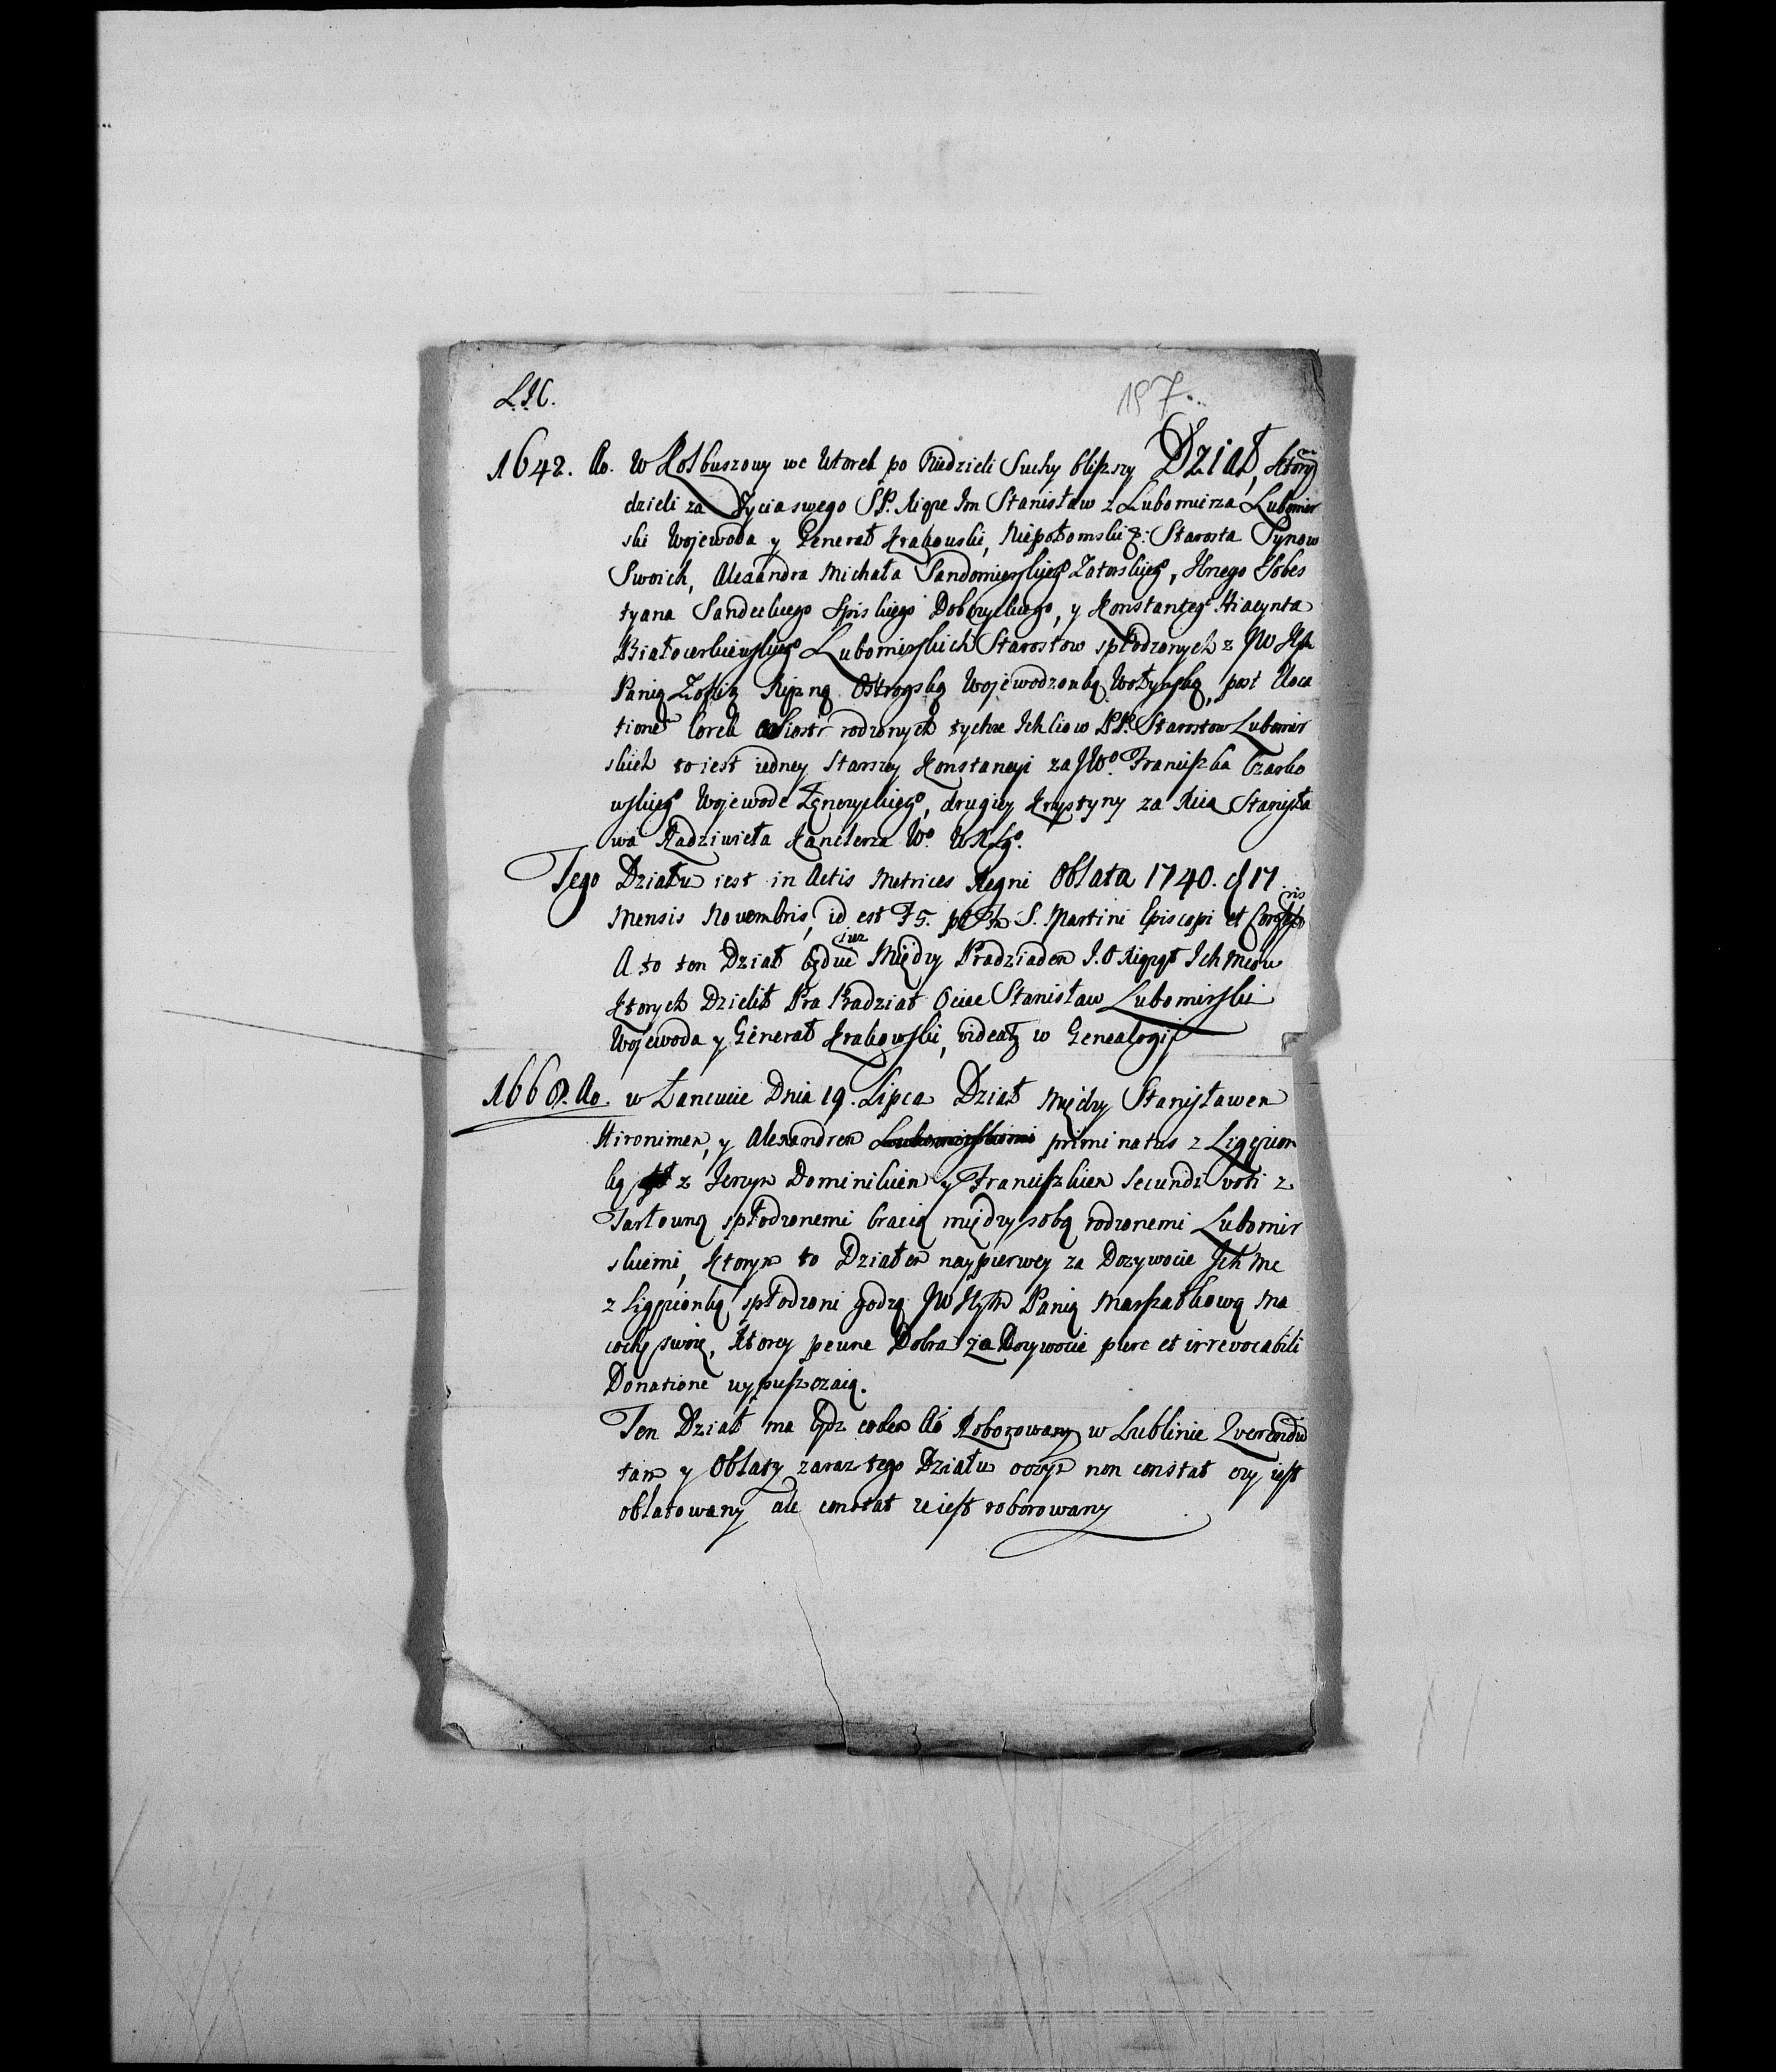 L.J.C.
187.
1642. Ao. W Kolbuszowy we Wtorek po Niedzieli Suchy bliższy Dział, ktory
dzieli za Życia swego SP. Xiąże Im Stanisław z Lubomierza Lubomir
ski Wojewoda y Generał Krakowski, Niepołomski Starosta Synow
Swoich, Alexandra Michała Sandomierskieg° Zatorskieg°, Jerzego Sebes
tyana Sandeckiego Spiskiego Dobczyckiego, y Konstanteg° Hiacynta
Białocerkiewskieg° Lubomirskich Starostow spłodzonych z JW
Panią Zofią Xiężną Ostrogską Wojewodzonką Wołyńską, post Uoca
tionem Corek Siostr rodzonych tychze Ichciow PP. Starostow Lubomir
skich to iest iedney Starszey Konstancyi za JWo. Franciszka Czarko
wskieg° Wojewodę Łęnczyckiego, drugiey Krystyny za Xcia Stanisła
wa Radziwiła Kanclerza Wo. WXLgo.
Tego Działu iest in Actis Metrices Regni Oblata 1740. d 17
Mensis Novembris, id est F 5. pt Fm S. Martini Episcopi et
A to ten Dział będzie iuz Między Pradziadem J.O Xiążąt Ichmciow
Ktorych Dzielił Pra Pradziad Ociec Stanisław Lubomirski
Wojewoda y Generał Krakowski, videatz w Genealogij
1668. Ao. w Łancucie Dnia 19. Lipca Dział między Stanisławem
Hironimem, y Alexandrem Lubomirskiemi primi natus z Ligęzion
ką z Jerzym Dominikiem y Franciszkiem Secundi voti z
Tarłowną spłodzonemi bracią między sobą rodzonemi Lubomir
skiemi, Ktorym to Działem naypierwey za Dozywocie Ich Mc
z Ligęzionką spłodzoni godzą JW Panią Marszałkową Ma
cochę swoię, Ktorey pewne Dobra za Dozywocie pure et irrevocabili
Donatione wypuszczaią.
Ten Dział ma bydz eodem Ao Roborowany w Lublinie
tam y Oblaty zaraz tego Działu oczym non constat czy iest
oblatowany ale constat ze iest roborowany